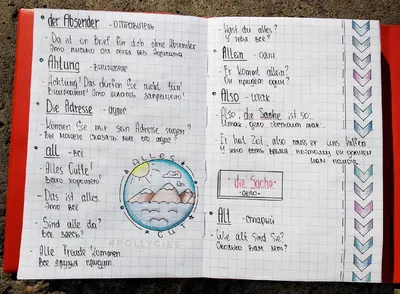 der Absender - отправитель
- Da ist ein Brief für dich ohne Absender
Это письмо для тебя без адресата
Ahtung - внимание
- Achtung! Das dürfen Sie nicht tun!
Внимание! Это делать запрещено!
Die Adresse - адрес
- Können Sie mir sein Adresse sagen?
- Вы можете сказать мне его адрес?
all - всё
- Alles Gutte!
Всего хорошего!
- Das ist alles
Это всё
- Sind alle da?
Все здесь?
- Alle Freude kommen.
Все друзья придут.
ALLES
GUT
@POLLYGIES
- Hast du alles?
У тебя все?
Allein - один
- Er kommt allein?
Он придет один?
Also - итак
- Also, die Sache ist so...
Итак, дело обстоит так...
- Er hat Zeit, also muss er uns helfen
У него есть время, поэтому он должен
нам помочь
die Sache
- дело -
Alt - старый
- Wie alt sind Sie?
Сколько вам лет?